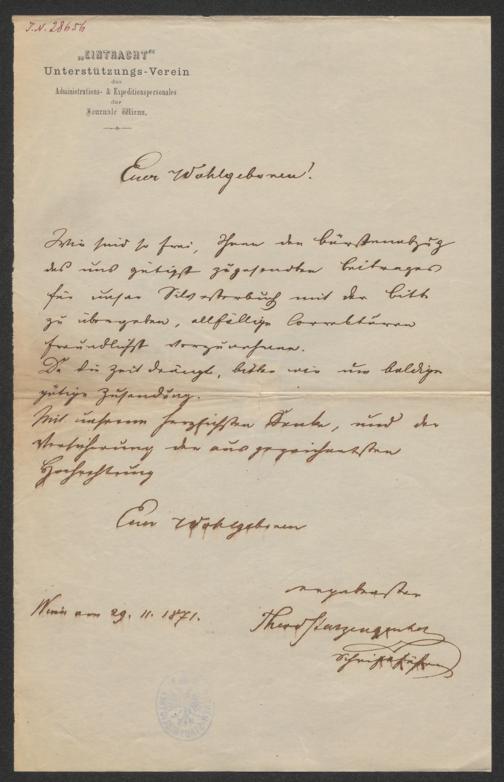 J.N. 28656
„EINTRACHT“
Unterstützungs-Verein
des
Administrations- & Expeditionspersonales
der
Journale Wiens.
Euer Wohlgeboren!
Wir sind so frei, Ihnen den Bürstenabzug
des uns gütigst zugesendten Beitrages
für unser Silvesterbuch mit der Bitte
zu übergeben, allfällige Correkturen
freundlichst vorzunehmen.
Da die Zeit drängt, bitten wir um baldige
gütige Zusendung.
Mit unserem herzlichsten Danke, und der
Versicherung der ausgezeichnetsten
Hochachtung
Euer Wohlgeboren
ergebenster
Wien am 29. 11. 1871.
Schriftführer